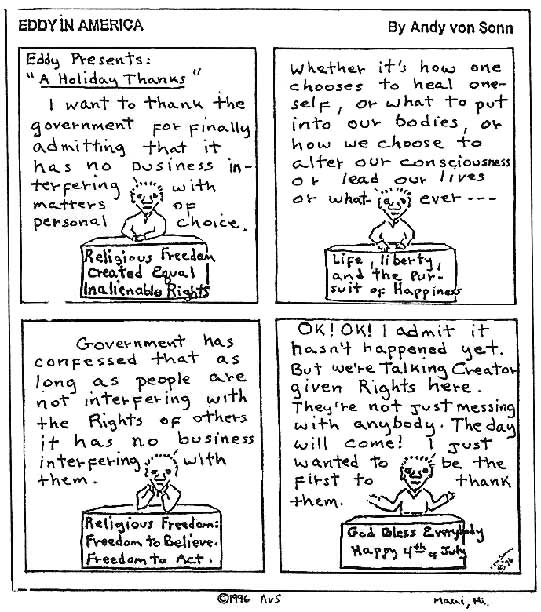 EDDY IN AMERICA
By Andy von Sonn
Eddy Presents:
"A Holiday Thanks"
I want to thank the
government for finally
admitting that it
has no business in-
terfering with
matters of
personal choice.
Religious Freedom
Created Equal
Inalienable Rights
Whether it's how one
chooses to heal one-
self, or what to put
into our bodies, or
how we choose to
alter our consciousness
or lead our lives
or what- ever ---
Life, liberty,
and the Pur-
suit of Happiness
Government has
confessed that as
long as people are
not interfering with
the Rights of others
it has no business
interfering with
them.
Religious Freedom:
Freedom to Believe.
Freedom to Act.
OK! OK! I admit it
hasn't happened yet.
But we're Talking Creator
given Rights here.
They're not just messing
with anybody. The day
will come! I just
wanted to be the
first to thank
them.
God Bless Everybody
Happy 4th of July
©1996 AvS
Maui, Hi.